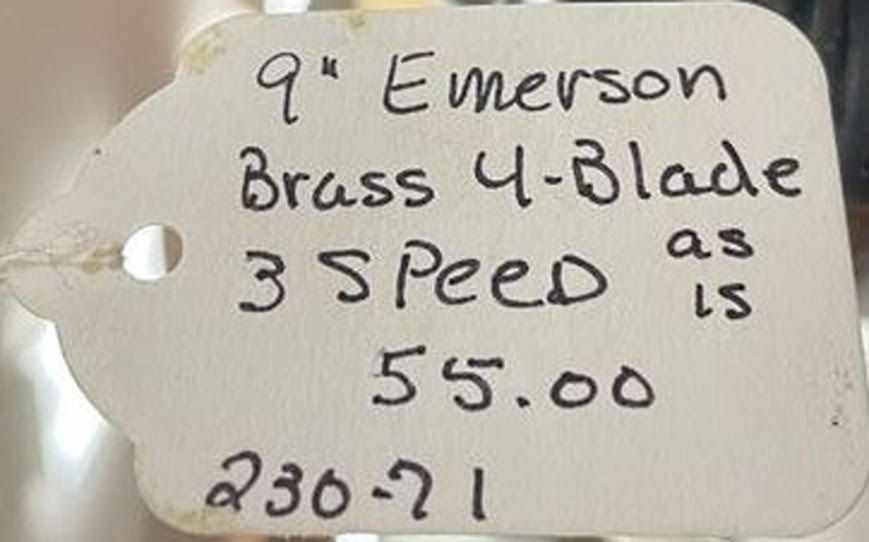 9" Emerson
Brass 4-Blade
3 SPeeD as is
55.00
230-71